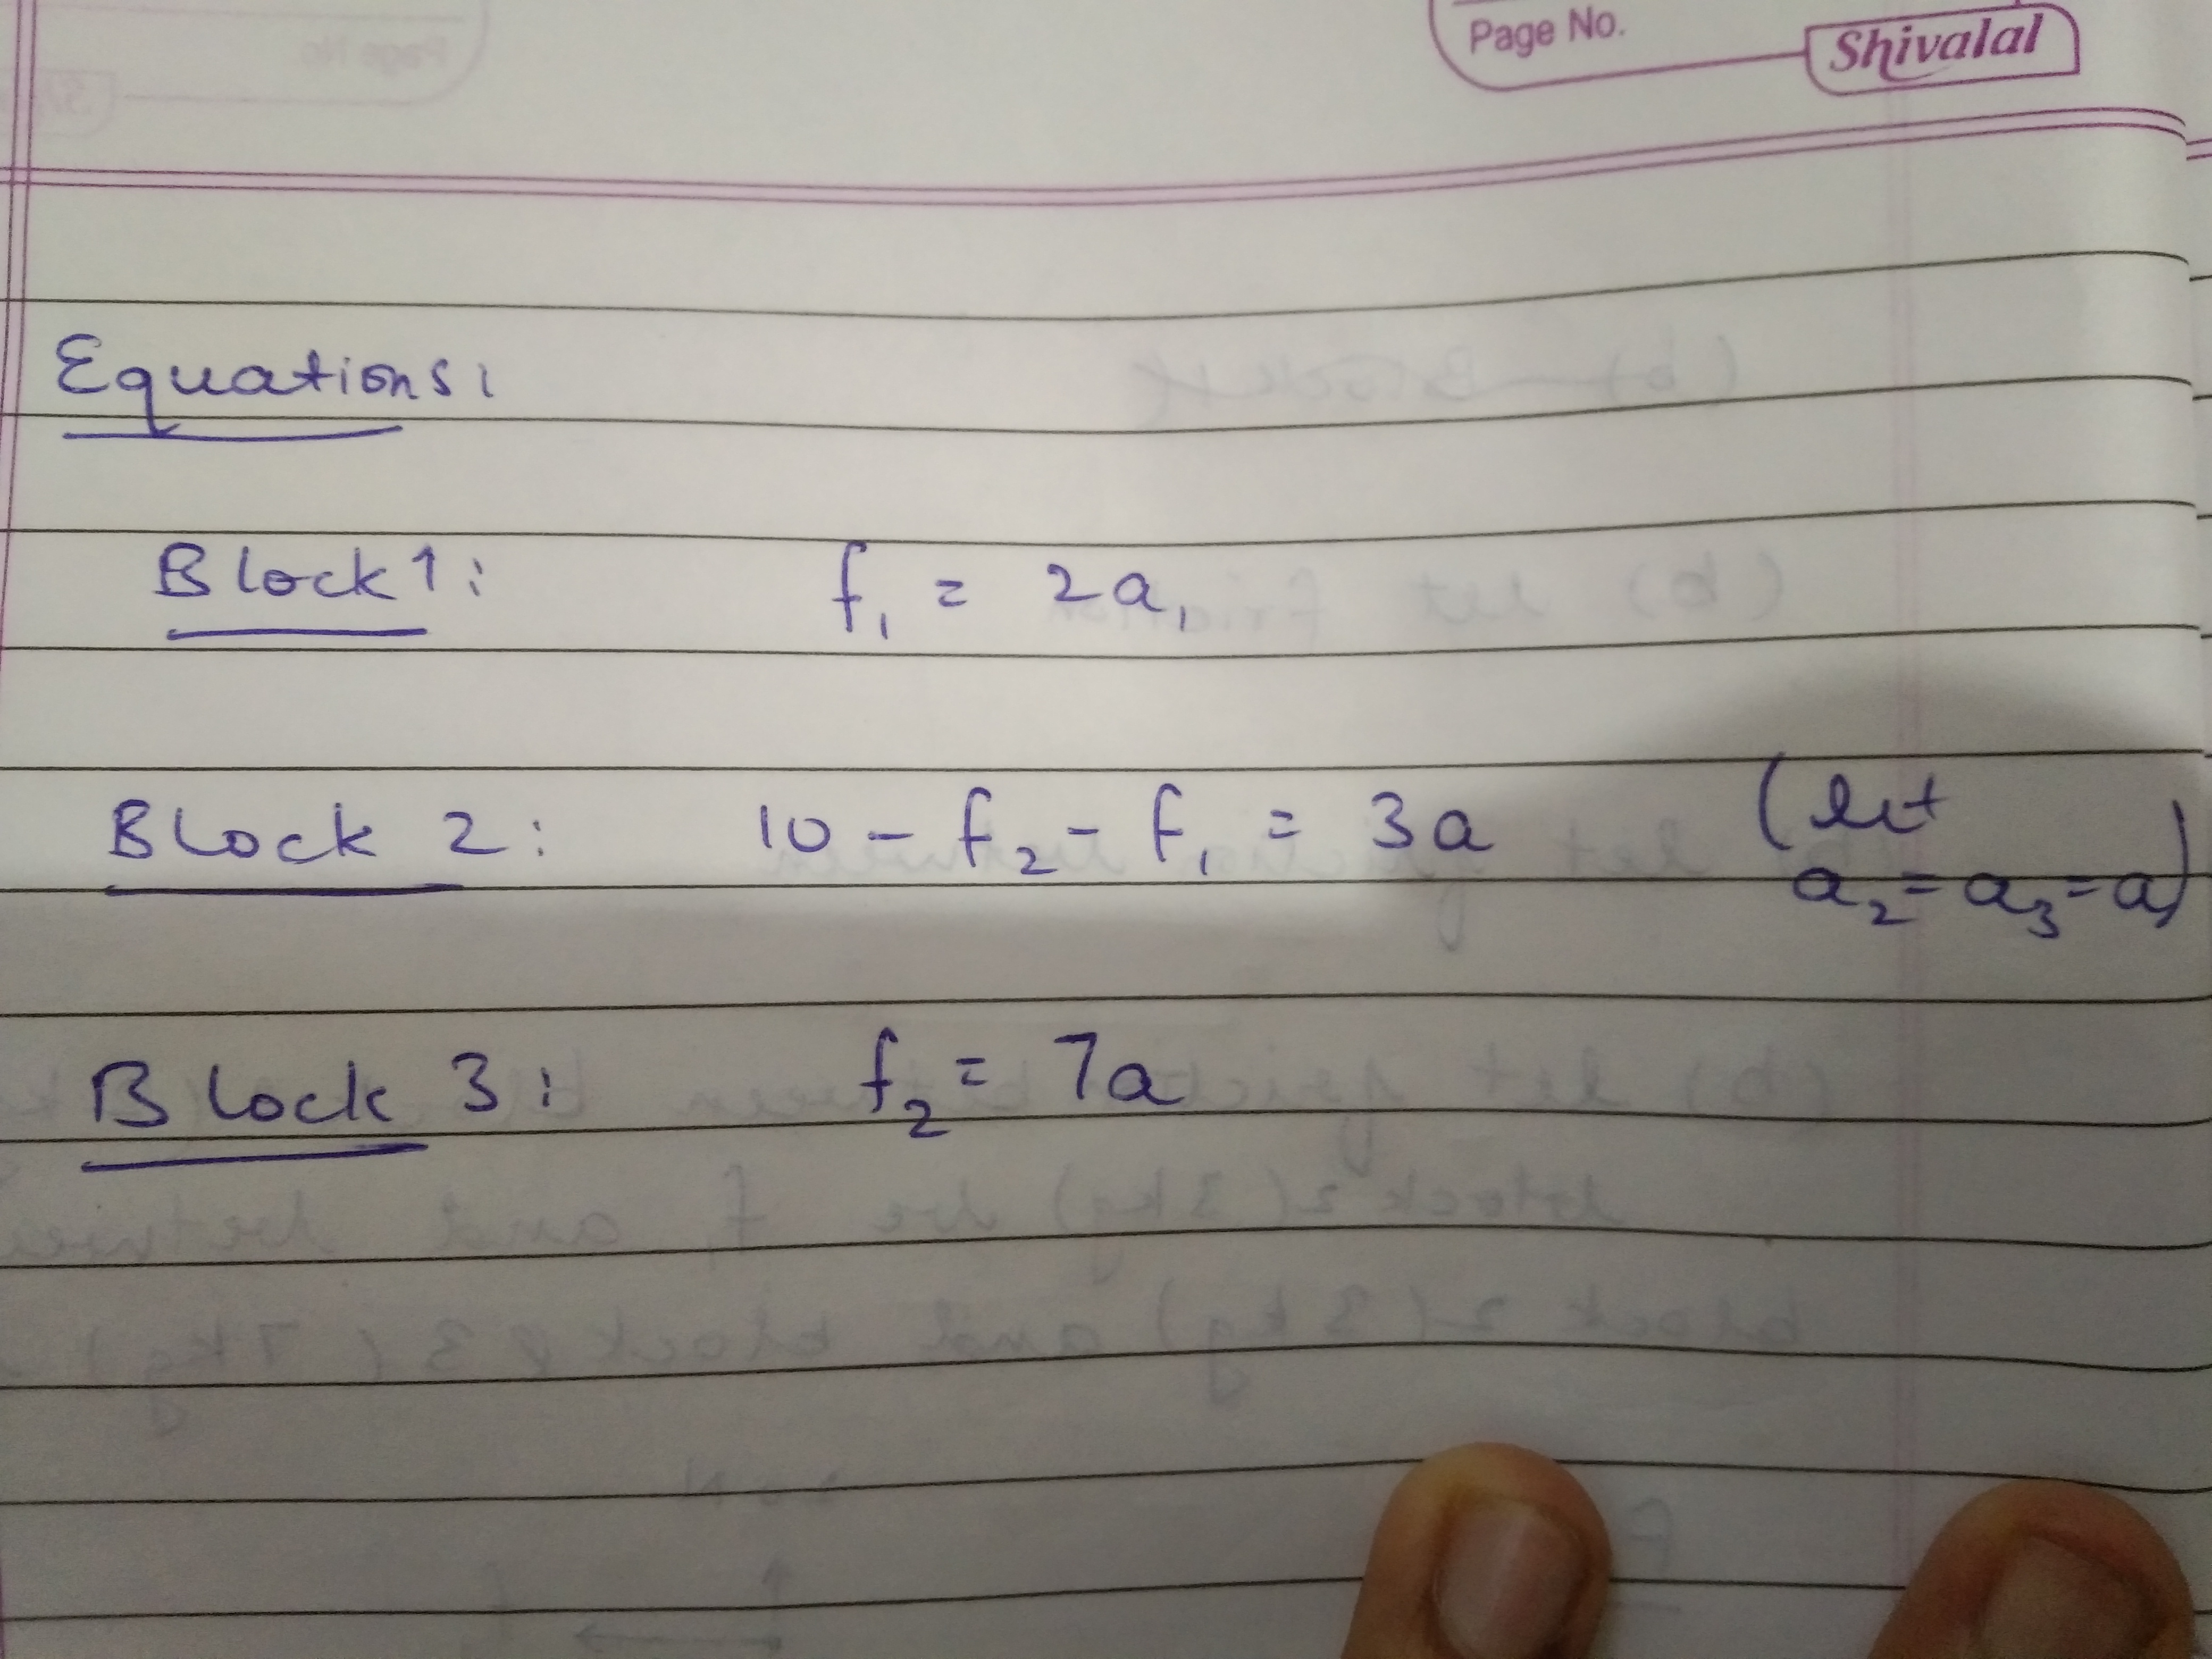 Page No.
Shivalal
Equations:
Block 1: f₁ = 2a₁
Block 2: 10 - f₂ - f₁ = 3a (let
a₂ = a₃ = a)
Block 3: f₂ = 7a